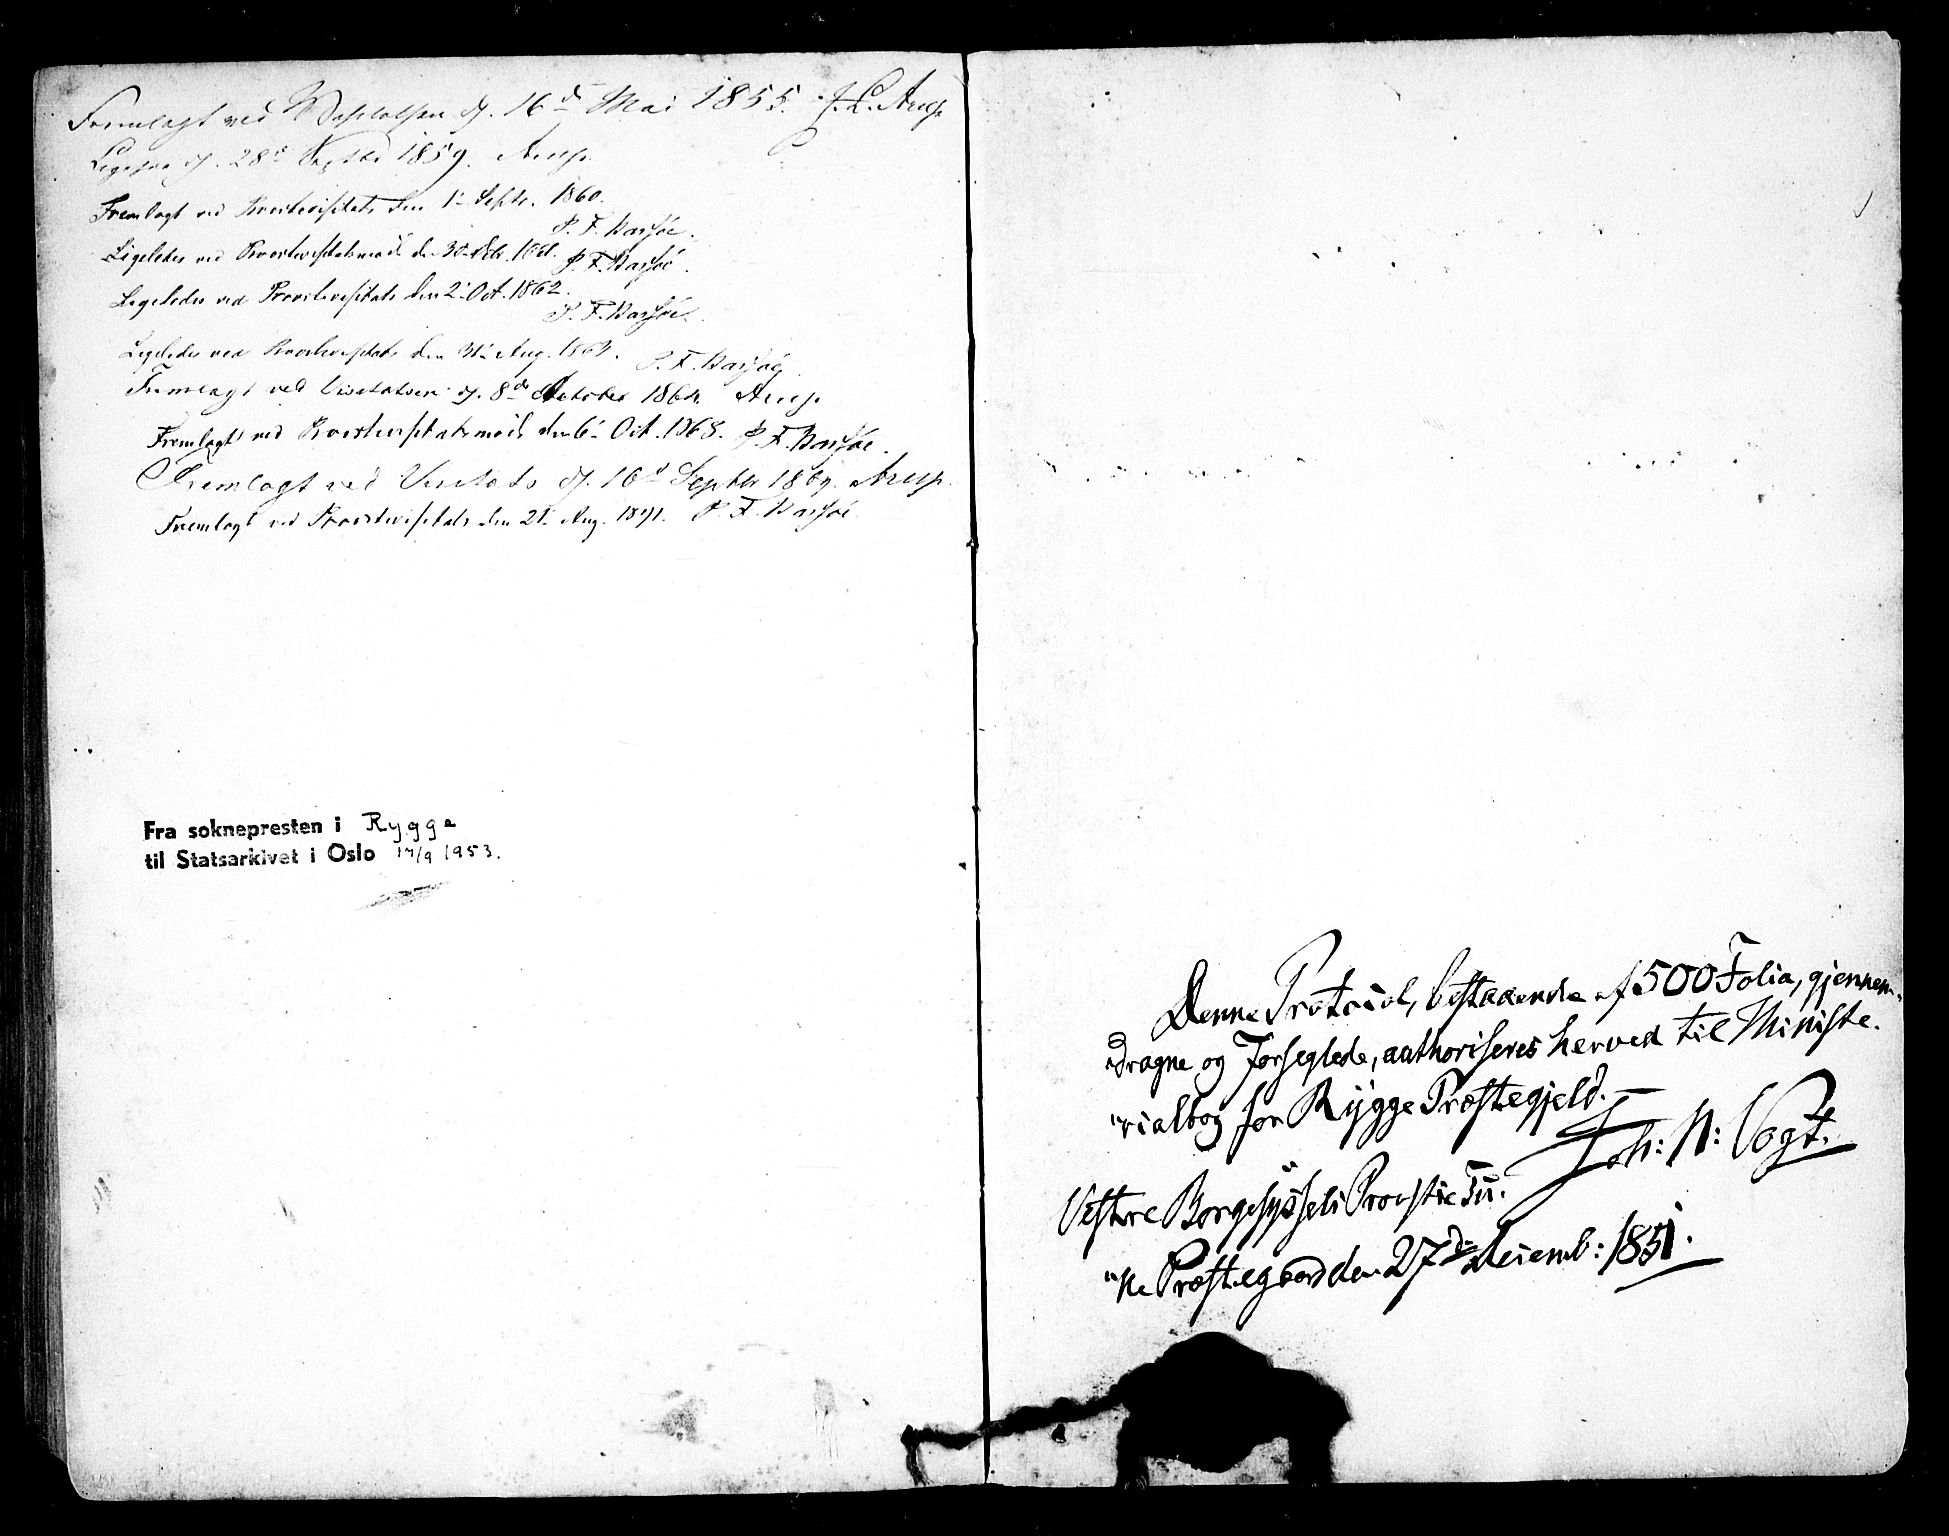 Fremlagt ved Visitatsen d. 16d Mai 1855. J. L. Arup
Ligesaa d. 28d Septbr 1859. Arup.
Fremlagt ved Provstevisitats den 1- Septr. 1860.
P. F. Bassøe.
Ligeledes ved Provstevisitats den 30-
P. F. Bassøe.
Ligeledes ved Provstevisitats den 2- Oct. 1862.
P. F. Bassøe.
Ligeledes ved Provstevisitats den 31- Aug. 1863. P. F. Bassøe
Fremlagt ved Visitatsen d. 8de October 1864 Arup.
Fremlagt ved Provstevisitats den 6- Oct. 1868. P. F. Bassøe.
Fremlagt ved Visitats d. 16d Septbr 1869. Arup.
Fremlagt ved Provstevisitats den 21. Aug. 1871. P. F. Bassøe
Fra soknepresten i Rygge
til Statsarkivet i Oslo 17/9 1953.
Denne Protocol, bestaaende af 500 Folia, gjennem-
dragne og forseglede, authoriseres herved til Ministe-
"rialbog for Rygge Præstegjeld.—
Joh: N: Vogt.
Vestre Borgesyssels Provstie Tu-
"ne Præstegaard den 27de Decemb: 1851.